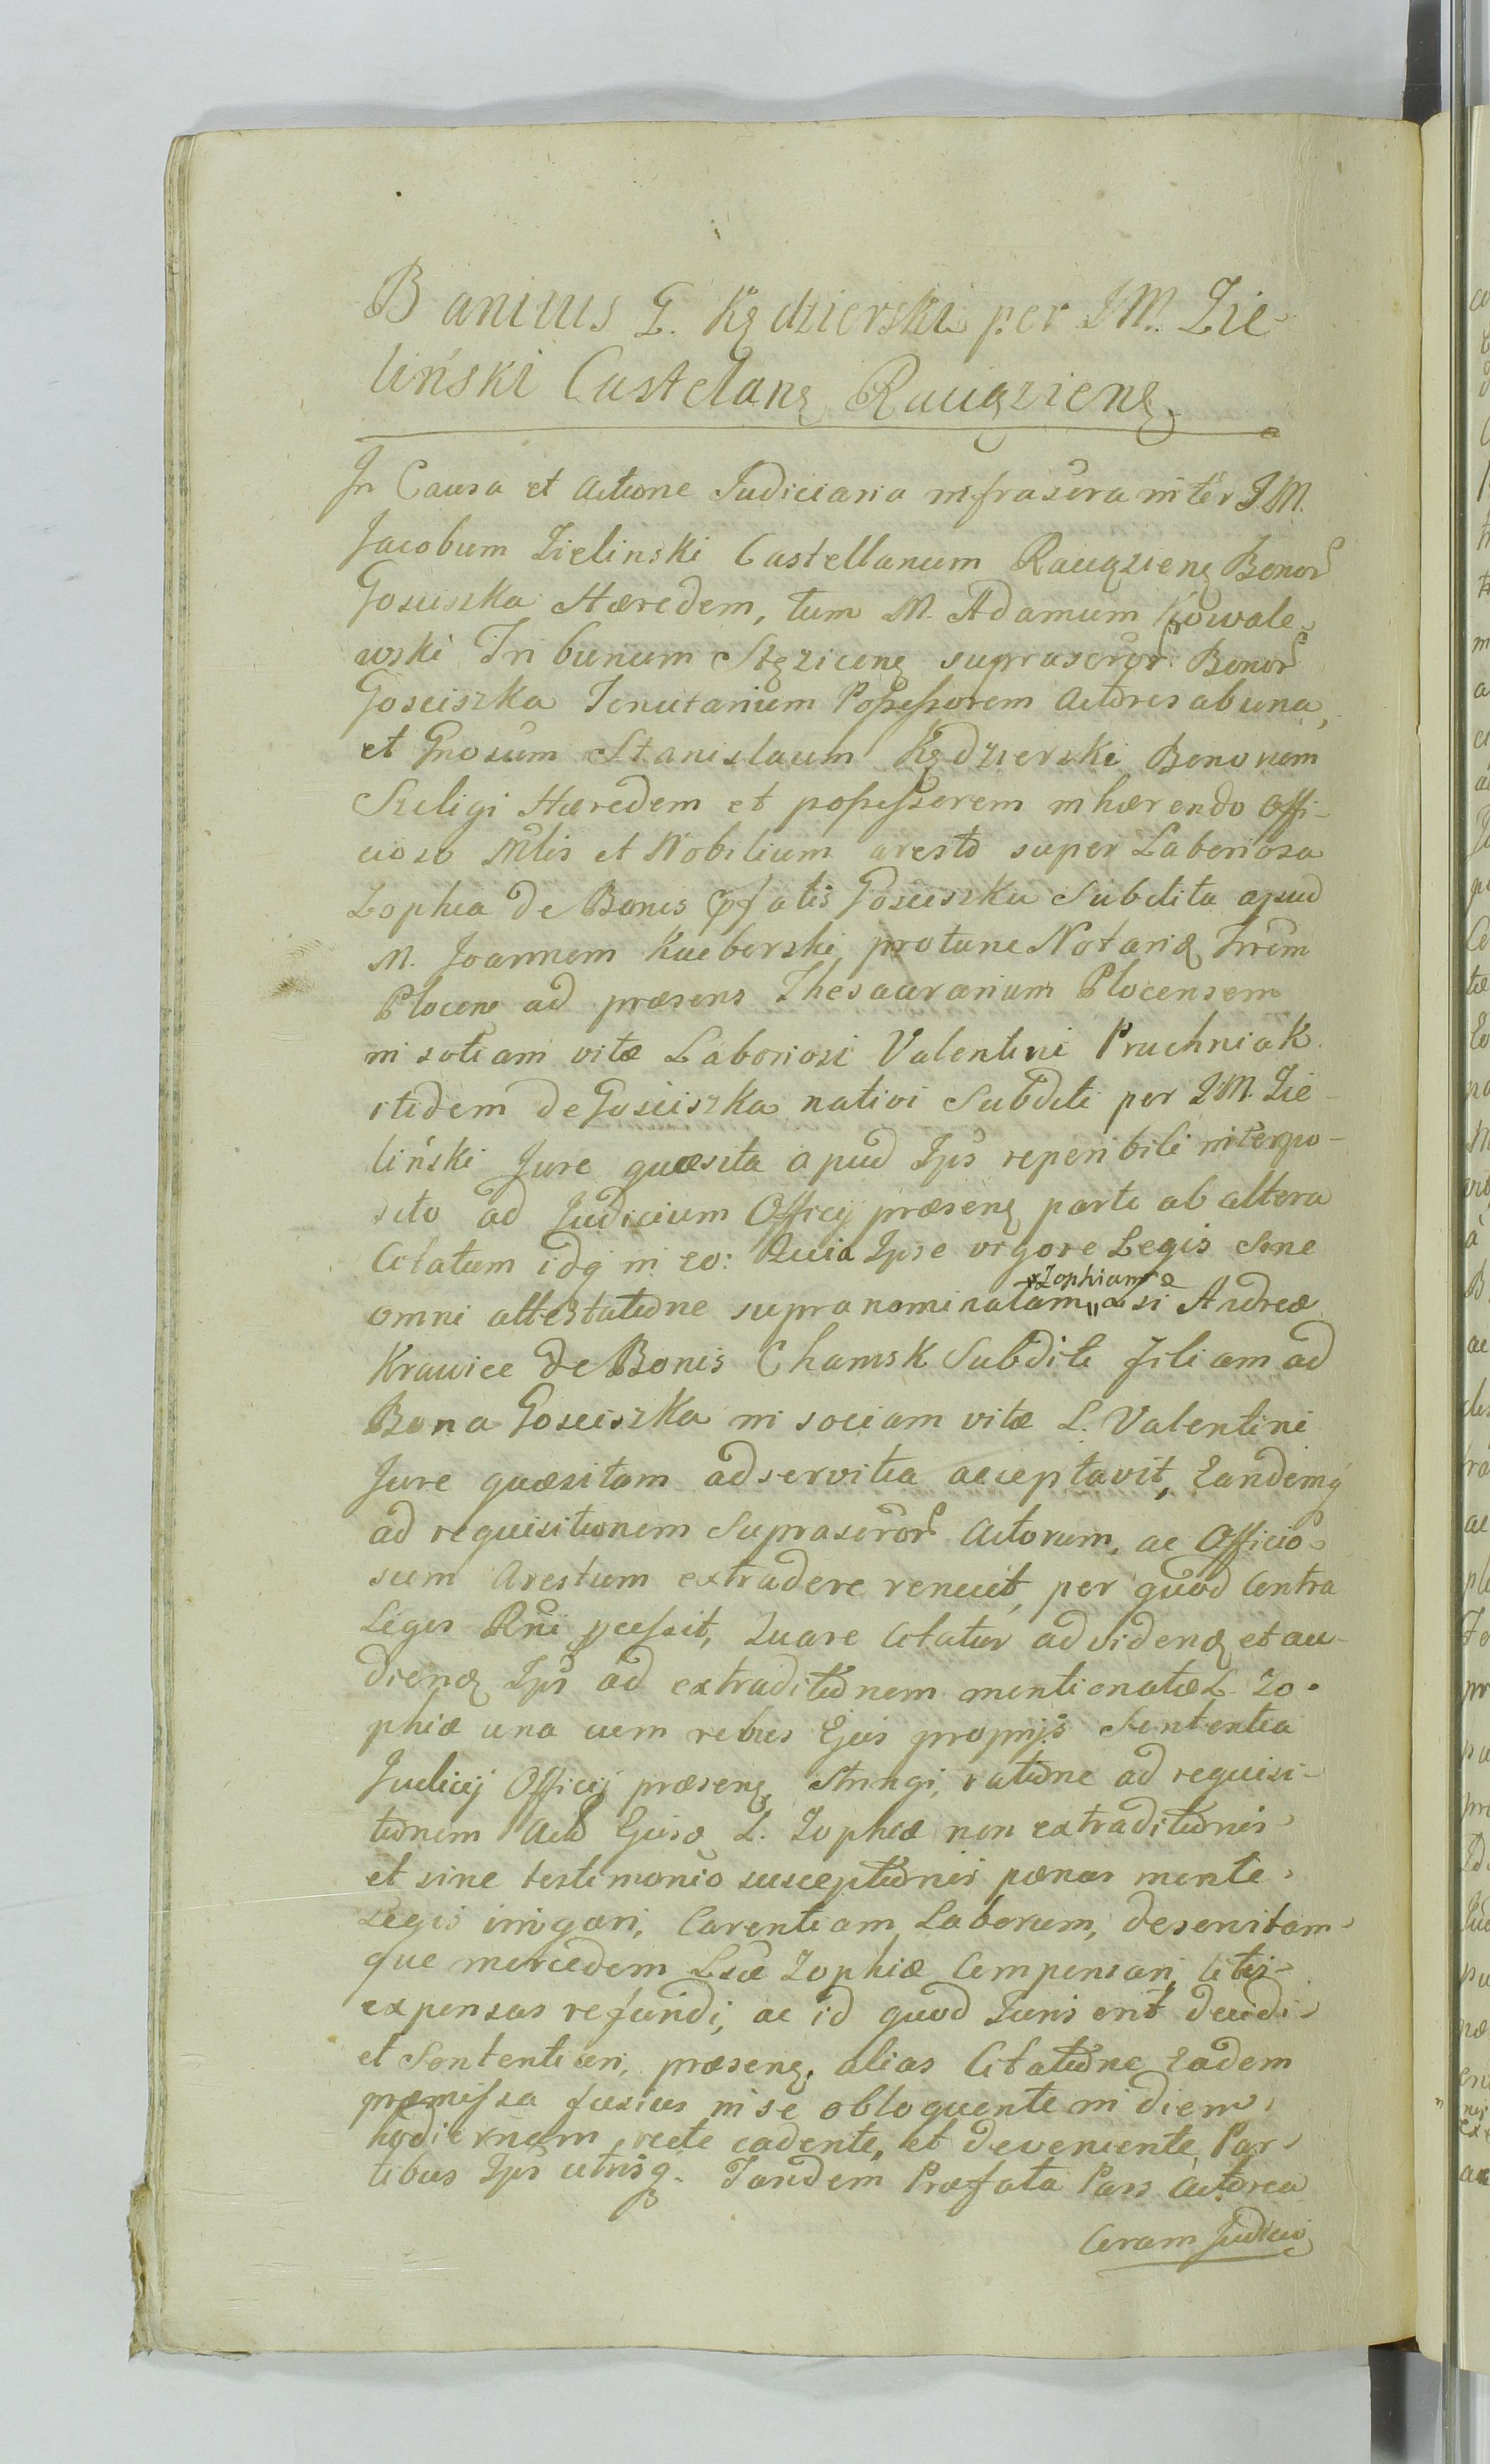 Banitus G. Kędzierski per JM. Zie-
liński Castelanę Raciązienę.
In Causa et Actione Judiciaria infrascra inter JM.
Jacobum Zielinski Castellanum Raciązienę Bonor
Gosciszka Hæredem, tum M. Adamum Kowale-
wski Tribunum Stęzicenę suprascror Bonor
Gosciszka Tenutarium Possessorem Actores ab una,
et Gnosum Stanislaum Kędzierski Bonorum
Szeligi Hæredem et possessorem inhærendo Offi-
cioso Mlis et Nobilium aresto super Laboriosa
Zophia de Bonis pfatis Gosciszka Subdita apud
M. Joannem Kucborski protunc Notariū Trrem
Plocenę ad præsens Thesaurarium Plocensem
in sotiam vitæ Laboriosi Valentini Pruchniak
itidem de Gosciszka nativi Subditi per JM. Zie-
liński Jure quæsita apud Ips reperibili interpo-
sito ad Judicium Officij præsenę parte ab altera
Citatum idq in eo: Quia Ipse vigore Legis sine
omni attestatione supranominatam Zophiam Lsi Andreæ
Krawiec de Bonis Chamsk Subditi filiam ad
Bona Gosciszka in sociam vitæ L. Valentini
Jure quæsitam ad servitia acceptavit, Eandemq
ad requisitionem Suprascror Actorum, ac Officio-
sum Arestum extradere renuit, per quod Contra
Leges Rni pcessit, Quare Citatur ad videnđ et au-
dienđ Ips ad extraditionem mentionatæ L. Zo-
phiæ una cum rebus Ejus proprijs Sententia
Judicij Officij præsenę Stringi, ratione ad requisi-
tionem Acto Ejusđ L. Zophiæ non extraditionis
et sine testimonio susceptionis pænas mente
Legis irrogari, Carentiam Laborum, deservitam-
que mercedem Lsæ Zophiæ Compensari, Litis
expensas refundi, ac id quod Juris erit decidi
et Sententiari, præsenę. alias Citatione Eadem
præmissa fusius in se obloquente in diem
hodiernam recte cadente, et deveniente Par-
tibus Ips utrisq. Tandem Præfata Pars Actorea
Coram Judicio